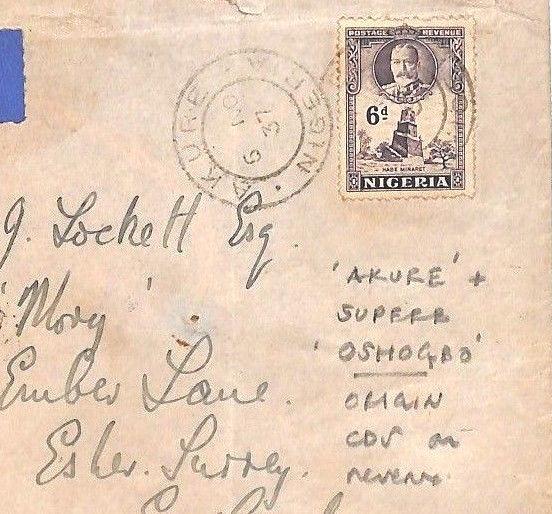 POSTAGE REVENUE
6d
HABE MINARET
NIGERIA
AKURE · NIGERIA
37
J. Lockett Esq.
'Mory'
Ember Lane.
Esher. Surrey.
'AKURE' +
SUPERB
'OSHOGBO'
ORIGIN
CDS on
reverse